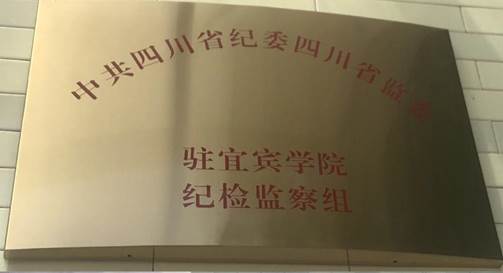 中共四川省纪委四川省监委
驻宜宾学院
纪检监察组